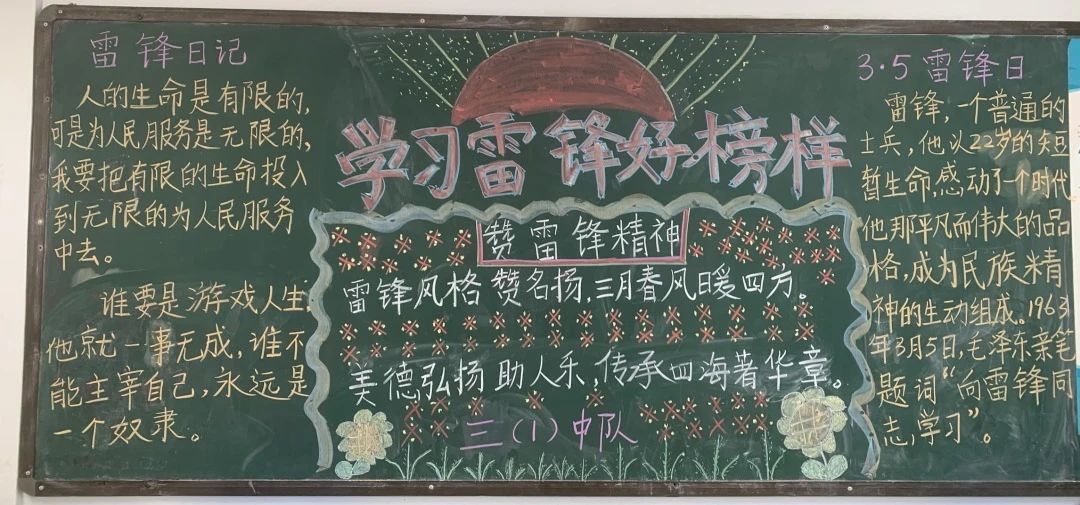 雷锋日记
人的生命是有限的,
可是为人民服务是无限的,
我要把有限的生命投入
到无限的为人民服务
中去。
谁要是游戏人生
他就一事无成,谁不
能主宰自己,永远是
一个奴隶。
学习雷锋好榜样
赞雷锋精神
雷锋风格赞名扬,三月春风暖四方。
美德弘扬助人乐,传承四海著华章。
三(1)中队
3·5雷锋日
雷锋,一个普通的
士兵,他以22岁的短
暂生命,感动了一个时代,
他那平凡而伟大的品
格,成为民族精
神的生动组成。1963
年3月5日,毛泽东亲笔
题词“向雷锋同
志,学习”。